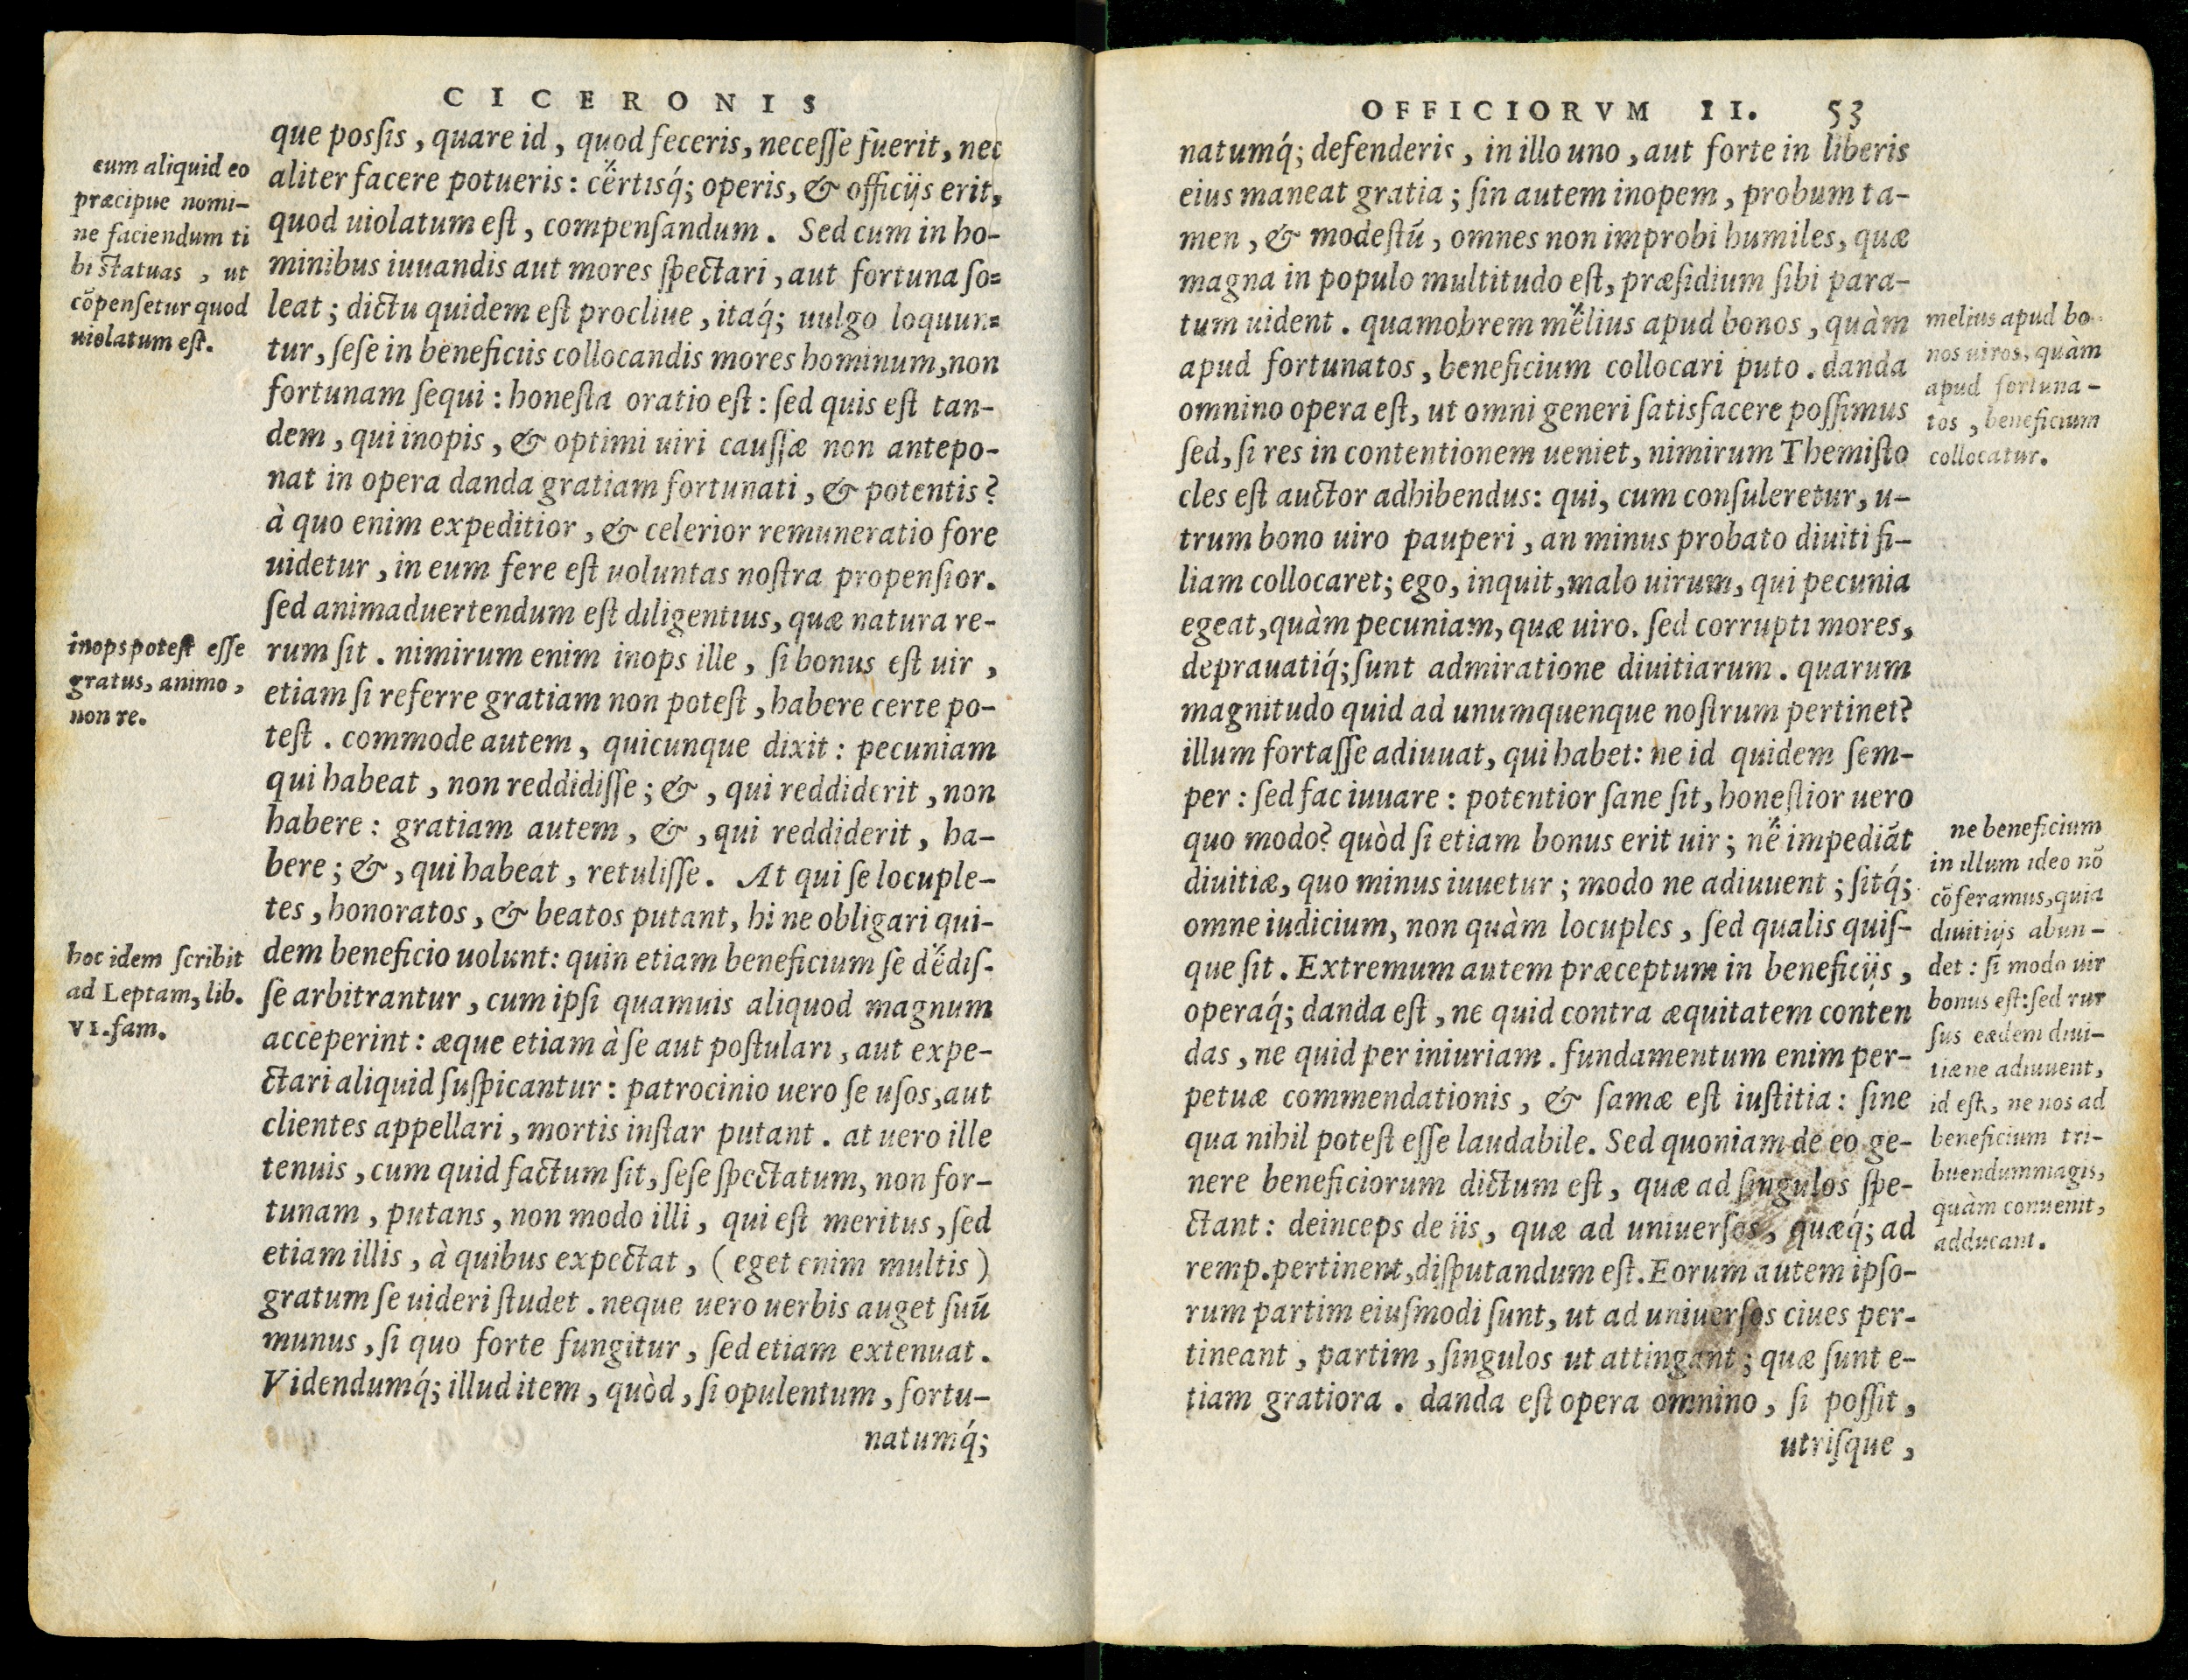 CICERONIS
que poſsis, quare id, quod feceris, neceſſe fuerit, nec
aliter facere potueris: certisq́; operis, & officijs erit,
quod uiolatum eſt, compenſandum. Sed cum in ho-
minibus iuuandis aut mores ſpectari, aut fortuna ſo=
leat; dictu quidem eſt procliue, itaq́; uulgo loquun=
tur, ſeſe in beneficiis collocandis mores hominum, non
fortunam ſequi: honeſta oratio eſt: ſed quis eſt tan-
dem, qui inopis, & optimi uiri cauſſæ non antepo-
nat in opera danda gratiam fortunati, & potentis?
à quo enim expeditior, & celerior remuneratio fore
uidetur, in eum fere eſt uoluntas noſtra propenſior.
ſed animaduertendum eſt diligentius, quæ natura re-
rum ſit. nimirum enim inops ille, ſi bonus eſt uir,
etiam ſi referre gratiam non poteſt, habere certe po-
teſt. commode autem, quicunque dixit: pecuniam
qui habeat, non reddidiſſe; &, qui reddiderit, non
habere: gratiam autem, &, qui reddiderit, ha-
bere; &, qui habeat, retuliſſe. At qui ſe locuple-
tes, honoratos, & beatos putant, hi ne obligari qui-
dem beneficio uolunt: quin etiam beneficium ſe dediſ-
ſe arbitrantur, cum ipſi quamuis aliquod magnum
acceperint: æque etiam à ſe aut poſtulari, aut expe-
ctari aliquid ſuſpicantur: patrocinio uero ſe uſos, aut
clientes appellari, mortis inſtar putant. at uero ille
tenuis, cum quid factum ſit, ſeſe ſpectatum, non for-
tunam, putans, non modo illi, qui eſt meritus, ſed
etiam illis, à quibus expectat, (eget enim multis)
gratum ſe uideri ſtudet. neque uero uerbis auget ſuũ
munus, ſi quo forte fungitur, ſed etiam extenuat.
Videndumq́; illud item, quòd, ſi opulentum, fortu-
natumq́;
cum aliquid eo
præcipue nomi-
ne faciendum ti
bi ſtatuas, ut
cõpenſetur quod
uiolatum eſt.
inops poteſt eſſe
gratus, animo,
non re.
hoc idem ſcribit
ad Leptam, lib.
VI. fam.
OFFICIORVM II. 53
natumq́; defenderis, in illo uno, aut forte in liberis
eius maneat gratia; ſin autem inopem, probum ta-
men, & modeſtũ, omnes non improbi humiles, quæ
magna in populo multitudo eſt, præſidium ſibi para-
tum uident. quamobrem melius apud bonos, quàm
apud fortunatos, beneficium collocari puto. danda
omnino opera eſt, ut omni generi ſatisfacere poſſimus
ſed, ſi res in contentionem ueniet, nimirum Themiſto
cles eſt auctor adhibendus: qui, cum conſuleretur, u-
trum bono uiro pauperi, an minus probato diuiti fi-
liam collocaret; ego, inquit, malo uirum, qui pecunia
egeat, quàm pecuniam, quæ uiro. ſed corrupti mores,
deprauatiq́; ſunt admiratione diuitiarum. quarum
magnitudo quid ad unumquenque noſtrum pertinet?
illum fortaſſe adiuuat, qui habet: ne id quidem ſem-
per: ſed fac iuuare: potentior ſane ſit, honeſtior uero
quo modo? quòd ſi etiam bonus erit uir; ne impediãt
diuitiæ, quo minus iuuetur; modo ne adiuuent; ſitq́;
omne iudicium, non quàm locuples, ſed qualis quiſ-
que ſit. Extremum autem præceptum in beneficijs,
operaq́; danda eſt, ne quid contra æquitatem conten
das, ne quid per iniuriam. fundamentum enim per-
petuæ commendationis, & famæ eſt iuſtitia: ſine
qua nihil poteſt eſſe laudabile. Sed quoniam de eo ge-
nere beneficiorum dictum eſt, quæ ad ſingulos ſpe-
ctant: deinceps de iis, quæ ad uniuerſos, quæq́; ad
remp. pertinent, diſputandum eſt. Eorum autem ipſo-
rum partim eiuſmodi ſunt, ut ad uniuerſos ciues per-
tineant, partim, ſingulos ut attingant; quæ ſunt e-
tiam gratiora. danda eſt opera omnino, ſi poſſit,
utriſque,
melius apud bo-
nos uiros, quàm
apud fortuna-
tos, beneficium
collocatur.
ne beneficium
in illum ideo nõ
cõferamus, quia
diuitijs abun-
det: ſi modo uir
bonus eſt: ſed rur
ſus eædem diui-
tiæ ne adiuuent,
id eſt, ne nos ad
beneficium tri-
buendum magis,
quàm conuenit,
adducant.